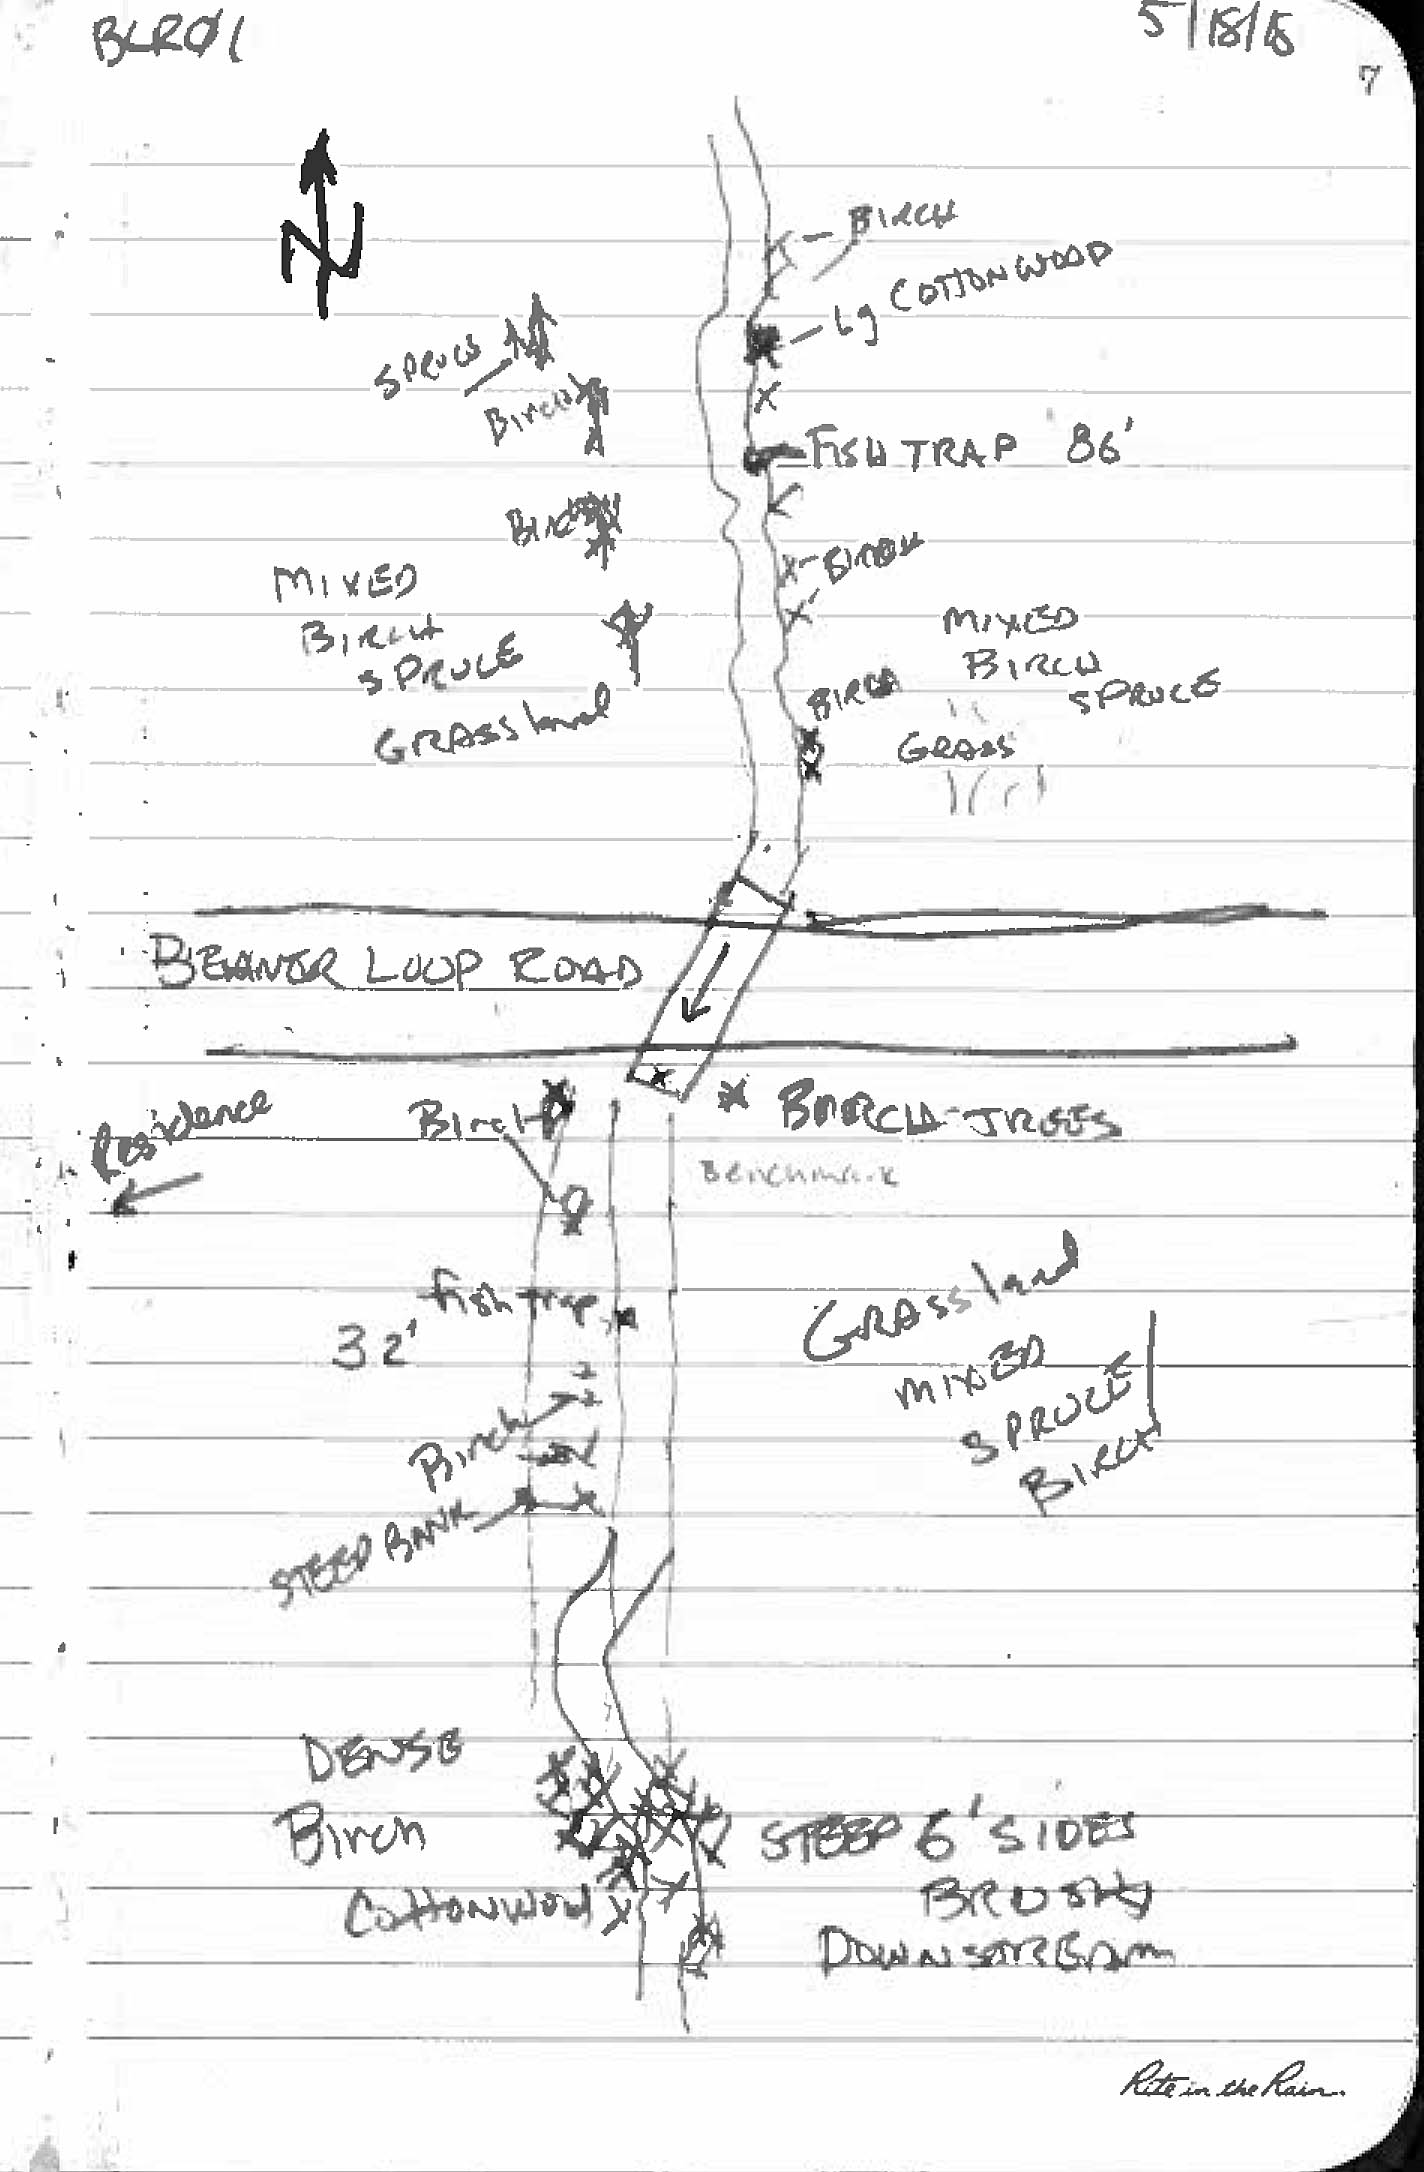 BLR01
5/18/15
7
N
BIRCH
lg COTTONWOOD
SPRUCE
Birch
FISH TRAP 86'
Birch
BIRCH
MIXED
BIRCH
SPRUCE
GRASSland
MIXED
BIRCH
SPRUCE
BIRCH
GRASS
BEAVER LOOP ROAD
Residence
Birch
BIRCH TREES
Benchmark
fish trap
32'
GRASSland
MIXED
SPRUCE
BIRCH
Birch
STEEP BANK
DENSE
Birch
Cottonwood
STEEP 6' SIDES
BRUSHY
DOWNSTREAM
Rite in the Rain.